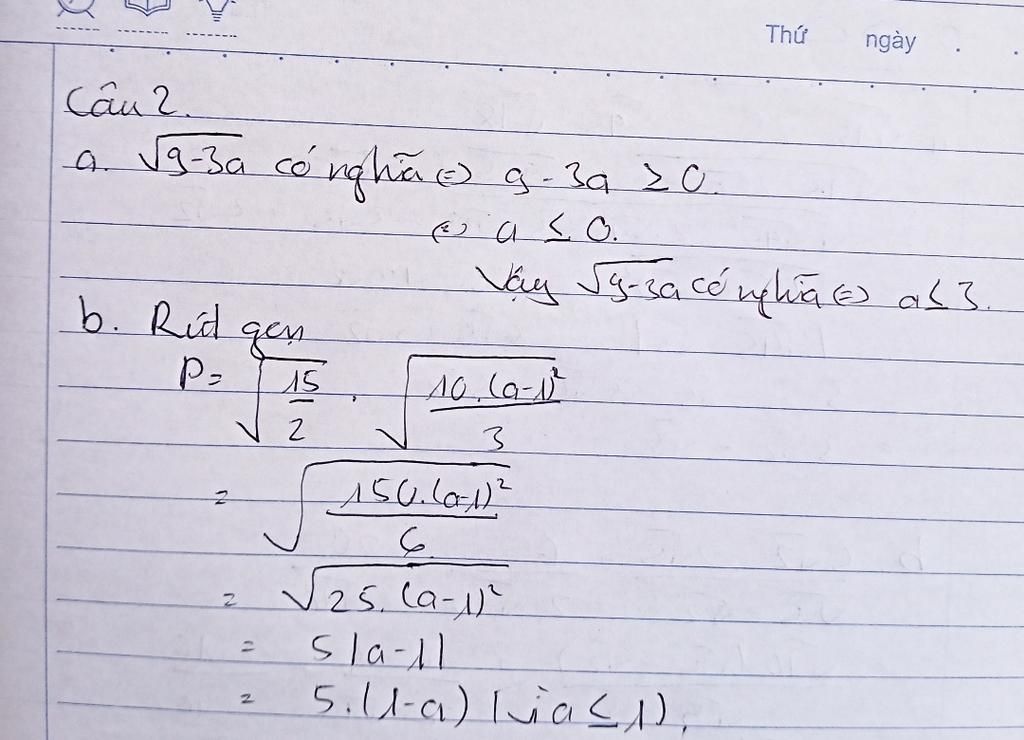 Thứ ngày . .
Câu 2.
a. √9-3a có nghĩa ⇔ 9 - 3a ≥ 0.
⇔ a ≤ 0.
Vậy √9-3a có nghĩa ⇔ a ≤ 3.
b. Rút gọn
P = √15/2 . √10.(a-1)²/3
= √150.(a-1)²/6
= √25.(a-1)²
= 5|a-1|
= 5.(1-a) (vì a ≤ 1).